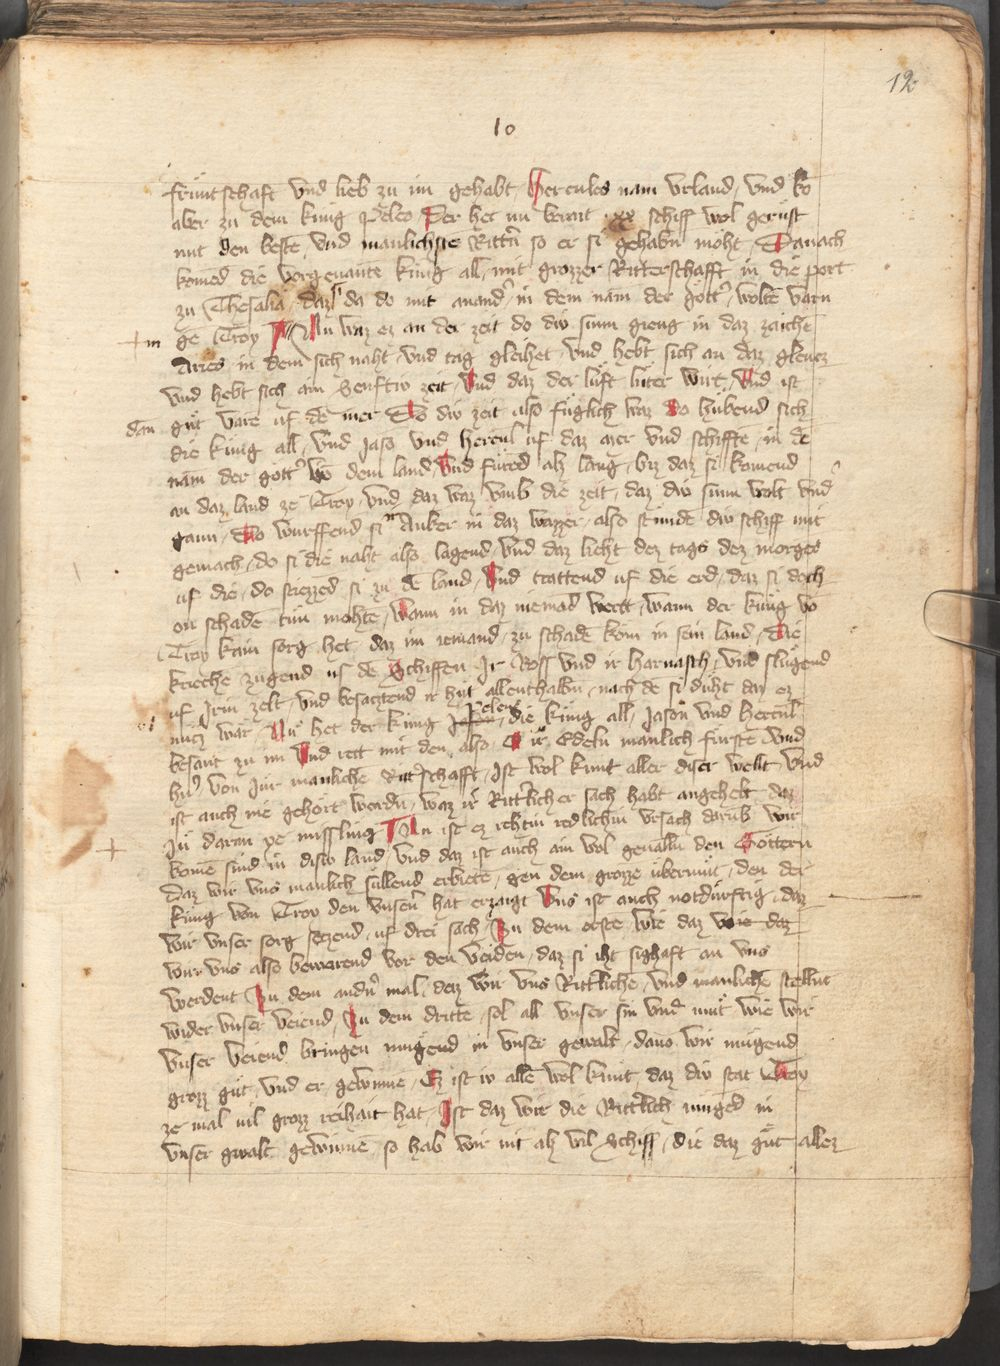 12
10
früntschaft vnd lieb zu im gehabt Hercules nam vrland vnd kō
aber zu dem küng Peleo Der het nu berait xx schiff wol gerüst
mit den beste vnd manlichste Rittn̄ so er si gehabn̄ moht Danach
komēd die vorgenante küng all mit grozzer Ritterschafft in die port
zu Thesalia daz da do mit anandˀ in dem nam der gottˀ woltē varn
gē Troy Nu waz ez an der zeit do div sunn gieng in daz zaichē
Aries in dem sich naht vnd tag gleihet vnd hebt sich an daz glentz
vnd hebt sich ain senftiv zeit Vnd daz der luft luter wirt Vnd ist
dan gůt varē uf dē mer Do div zeit also füglich waz Do hubend sich
die küng all vnd Jaso vnd hercul uf daz mer vnd schifftē in dē
nam der gottˀ vō dem land Vnd fůred alz lang biz daz si komend
an daz land zē Troy vnd daz waz vmb die zeit daz div sunn wolt vndˀ
gann Do wurffend si Anker in daz wazzer also stundē div schiff mit
gemach do si die naht also lagend Vnd daz lieht dez tags dez morges
uf die do stiezzed si zu dē land Vnd trattend uf die erd daz si doch
on schadē tůn mohtē Wann in daz niemād wert wann der küng vō
Troy kain sorg het daz im iemand zu schadē kom in sein land Die
kriechē zugend us dē Schiffen Jr Ross vnd ir harnasch vnd slůgend
uf Jrin zelt vnd besaztend ir hůt allenthalbn̄ nach dē si duht daz ez
nütz wär Nu het der küng Peleus die küng all Jason vnd hercul
besant zu im Vnd rett mit den also O ir Edeln manlich fürstē vnd
hrˀ von Jur manlichē Rittˀschafft Jst wol kunt aller diser wellt vnd
ist auch nie gehört wordn̄ waz ir Rittˀlicher sach habt angehebt daz
Ju daran ye missling Nu ist ez ichtin redlichin vrsach darūb wir
komē sind in disiv land vnd daz ist auch ain wol geualln̄ den Göttern
daz wir vns manlich süllend erbietē gen dem grozze übermůt den der
küng von Troy den vnsern̄ hat erzaigt Vns ist auch notdürftig daz
wir vnser sorg setzend uf drei sach Zu dem erste wie daz wie daz
wir vns also bewarend vor den veiden daz si iht sighaft an vns
werdent Zu dem andn̄ mal daz wir vns Rittˀlichē vnd manlichē stellnt
wider vnser veiend Zu dem drittē sol all vnser sin vnd můt wie wir
vnser veiend bringen mugend in vnser gewalt dauō wir mugend
grozz gůt vnd er gewinnē Ez ist iv allē wol kunt daz div stat Troy
ze mal uil grozz reihait hat Jst daz wir die Rittˀlich muged in
vnser gwalt gewinnē so hab wir nit alz vil Schiff die daz gůt allez